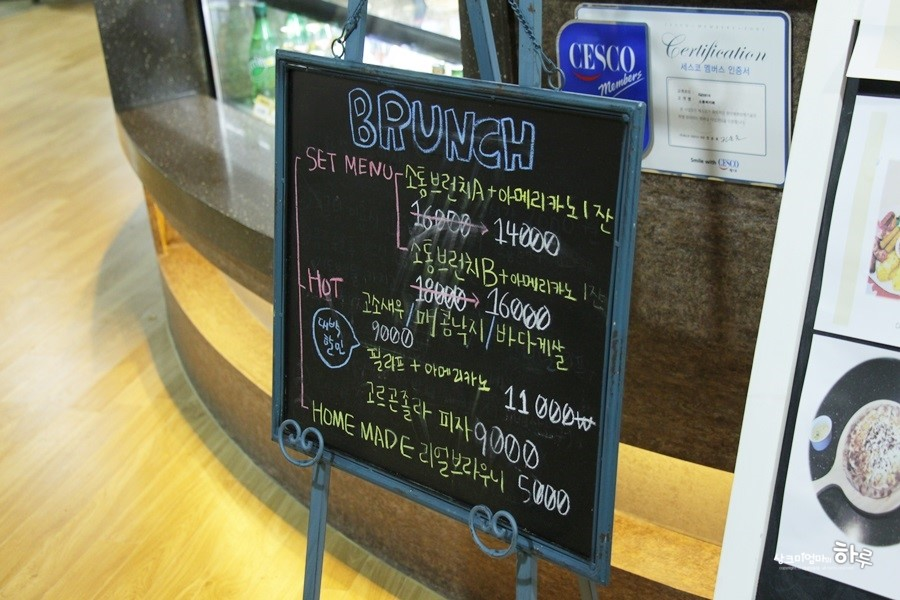 BRUNCH
SET MENU
소통브런치A + 아메리카노 1잔
16000 → 14000
소통브런치B + 아메리카노 1잔
18000 → 16000
HOT
대박
할인
고소새우 / 매콤낙지 / 바다게살
9000
필라프 + 아메리카노 11000₩
고르곤졸라 피자 9000
HOME MADE 리얼브라우니 5000
CESCO
Members
Certification
세스코 멤버스 인증서
Smile with CESCO
상크미엄마의 하루